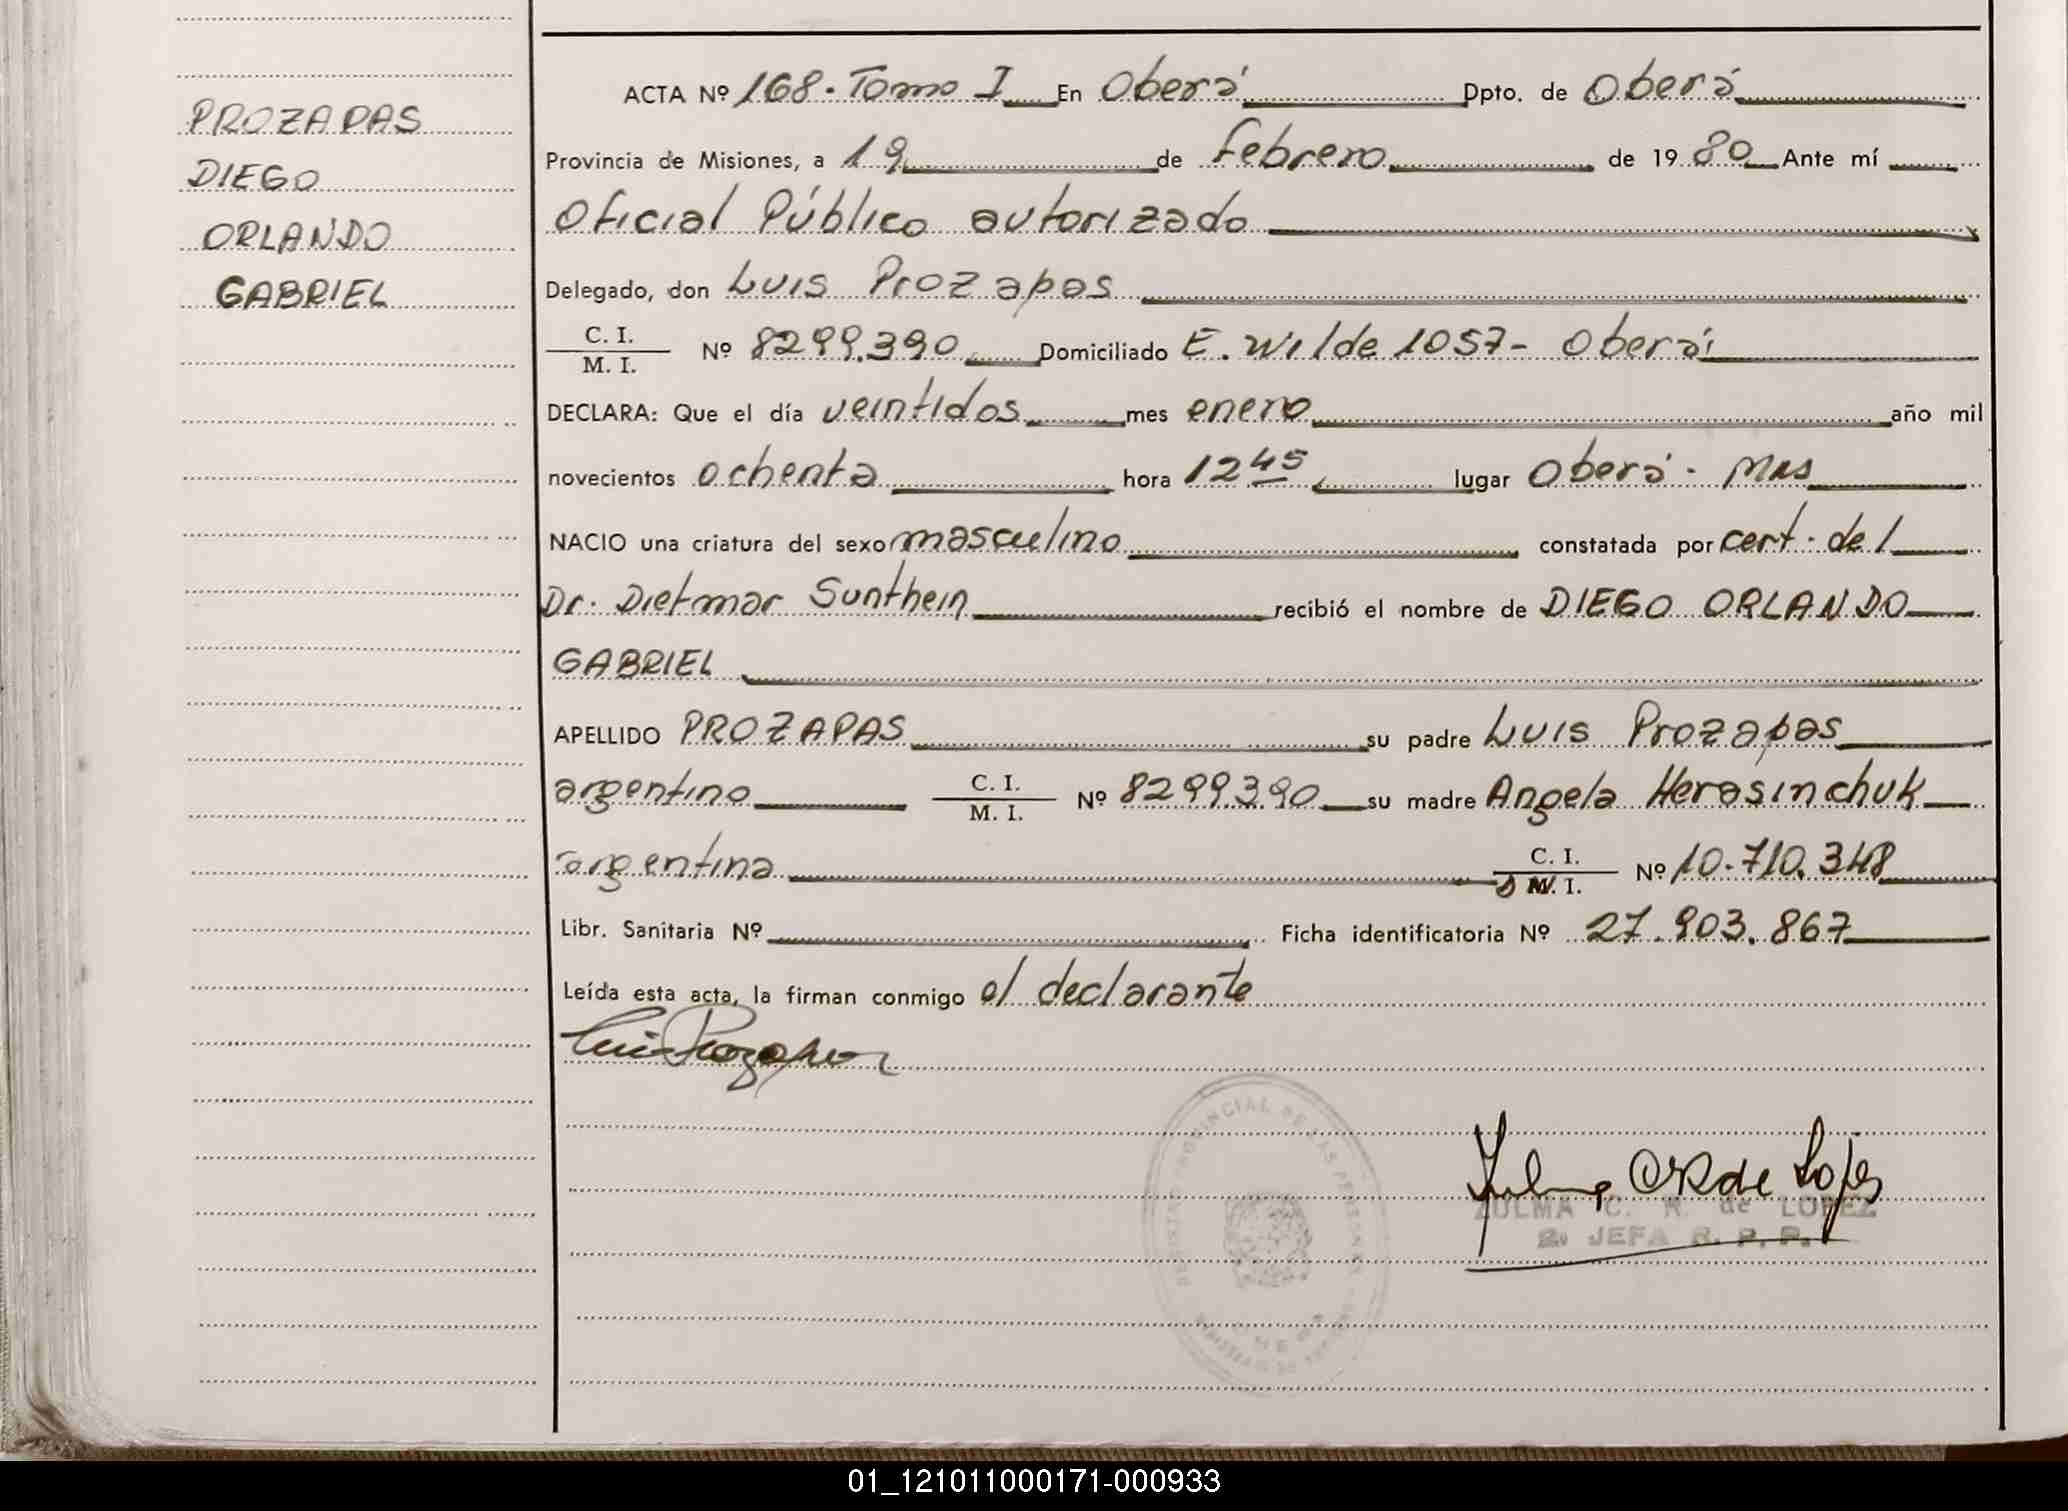 PROZAPAS
DIEGO
ORLANDO
GABRIEL
ACTA Nº 168. Tomo I En Oberá Dpto. de Oberá
Provincia de Misiones, a 19 de febrero de 1980 Ante mí
Oficial Público autorizado
Delegado, don Luis Prozapas
C. I.
M. I.
Nº 8299.390 Domiciliado E. Wilde 1057 - Oberá
DECLARA: Que el día veintidos mes enero año mil
novecientos ochenta hora 12 45 lugar Oberá - Mns
NACIO una criatura del sexo masculino constatada por cert. del
Dr. Dietmar Sunthein recibió el nombre de DIEGO ORLANDO
GABRIEL
APELLIDO PROZAPAS su padre Luis Prozapas
argentino C. I. M. I. Nº 8299.390 su madre Angela Herasinchuk
argentina C. I. M. I. Nº 10.710.348
Libr. Sanitaria Nº Ficha identificatoria Nº 27.903.867
Leída esta acta, la firman conmigo el declarante
Luis Prozapas
REGISTRO PROVINCIAL DE LAS PERSONAS
Zulma C R de Lopez
ZULMA C. R. de LOPEZ
2a JEFA R. P. P.
01_121011000171-000933